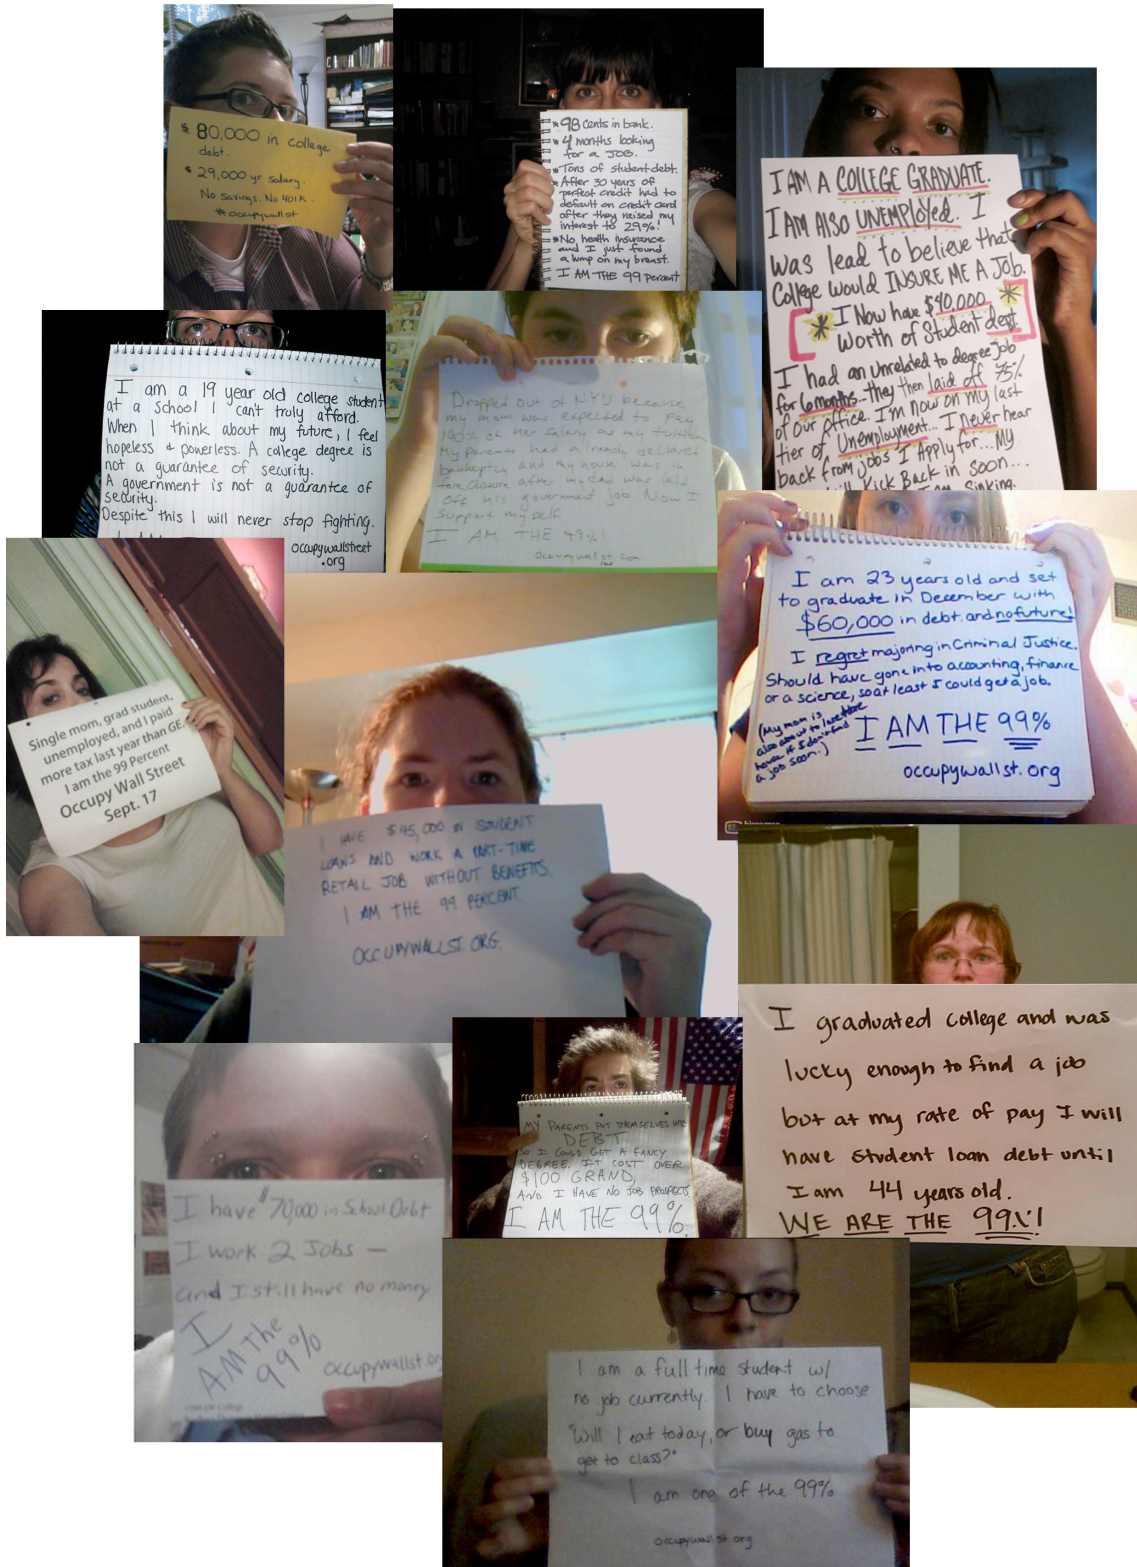 $ 80,000 in college
debt.
$ 29,000 yr salary.
No savings. No 401K.
#occupywallst
* 98 cents in bank.
* 4 months looking
for a JOB.
* Tons of student debt.
* After 30 years of
perfect credit had to
default on credit card
after they raised my
interest to 29%!
* No health insurance
and I just found
a lump on my breast.
I AM THE 99 percent
I AM A COLLEGE GRADUATE.
I AM ALSO UNEMPLOYED. I
was lead to believe that
College would INSURE ME A JOB.
I Now have $40,000
worth of Student debt
I had an unrelated to degree job
for 6 months... they then laid off 75%
of our office. I'm now on my last
tier of Unemployment... I never hear
back from jobs I Apply for... My
will Kick Back in soon...
I am Sinking.
I am a 19 year old college student
at a school I can't truly afford.
When I think about my future, I feel
hopeless & powerless. A college degree is
not a guarantee of security.
A government is not a guarantee of
security.
Despite this I will never stop fighting.
occupywallstreet
.org
Dropped out of NYU because
my mom was expected to pay
100% of her salary as my tuition
My parents had already declared
bankruptcy and my house was in
foreclosure after my dad was laid
off his government job Now I
support myself
I AM THE 99%!
occupywallst.com
I am 23 years old and set
to graduate in December with
$60,000 in debt and no future!
I regret majoring in Criminal Justice.
Should have gone into accounting, finance
or a science, so at least I could get a job.
(My mom is
also about to lose the
house if I don't find
a job soon.)
I AM THE 99%
occupywallst.org
Single mom, grad student,
unemployed, and I paid
more tax last year than GE.
I am the 99 Percent
Occupy Wall Street
Sept. 17
I HAVE $45,000 IN STUDENT
LOANS AND WORK A PART-TIME
RETAIL JOB WITHOUT BENEFITS.
I AM THE 99 PERCENT.
OCCUPYWALLST.ORG.
I graduated college and was
lucky enough to find a job
but at my rate of pay I will
have student loan debt until
I am 44 years old.
WE ARE THE 99%!
MY PARENTS PUT THEMSELVES INTO
DEBT
SO I COULD GET A FANCY
DEGREE. IT COST OVER
$100 GRAND,
AND I HAVE NO JOB PROSPECTS
I AM THE 99%.
I have $70,000 in School Debt
I work 2 Jobs —
and I still have no money
I
AM The
99%
occupywallst.or
I am a full time student w/
no job currently. I have to choose
"Will I eat today, or buy gas to
get to class?"
I am one of the 99%
occupywallst.org